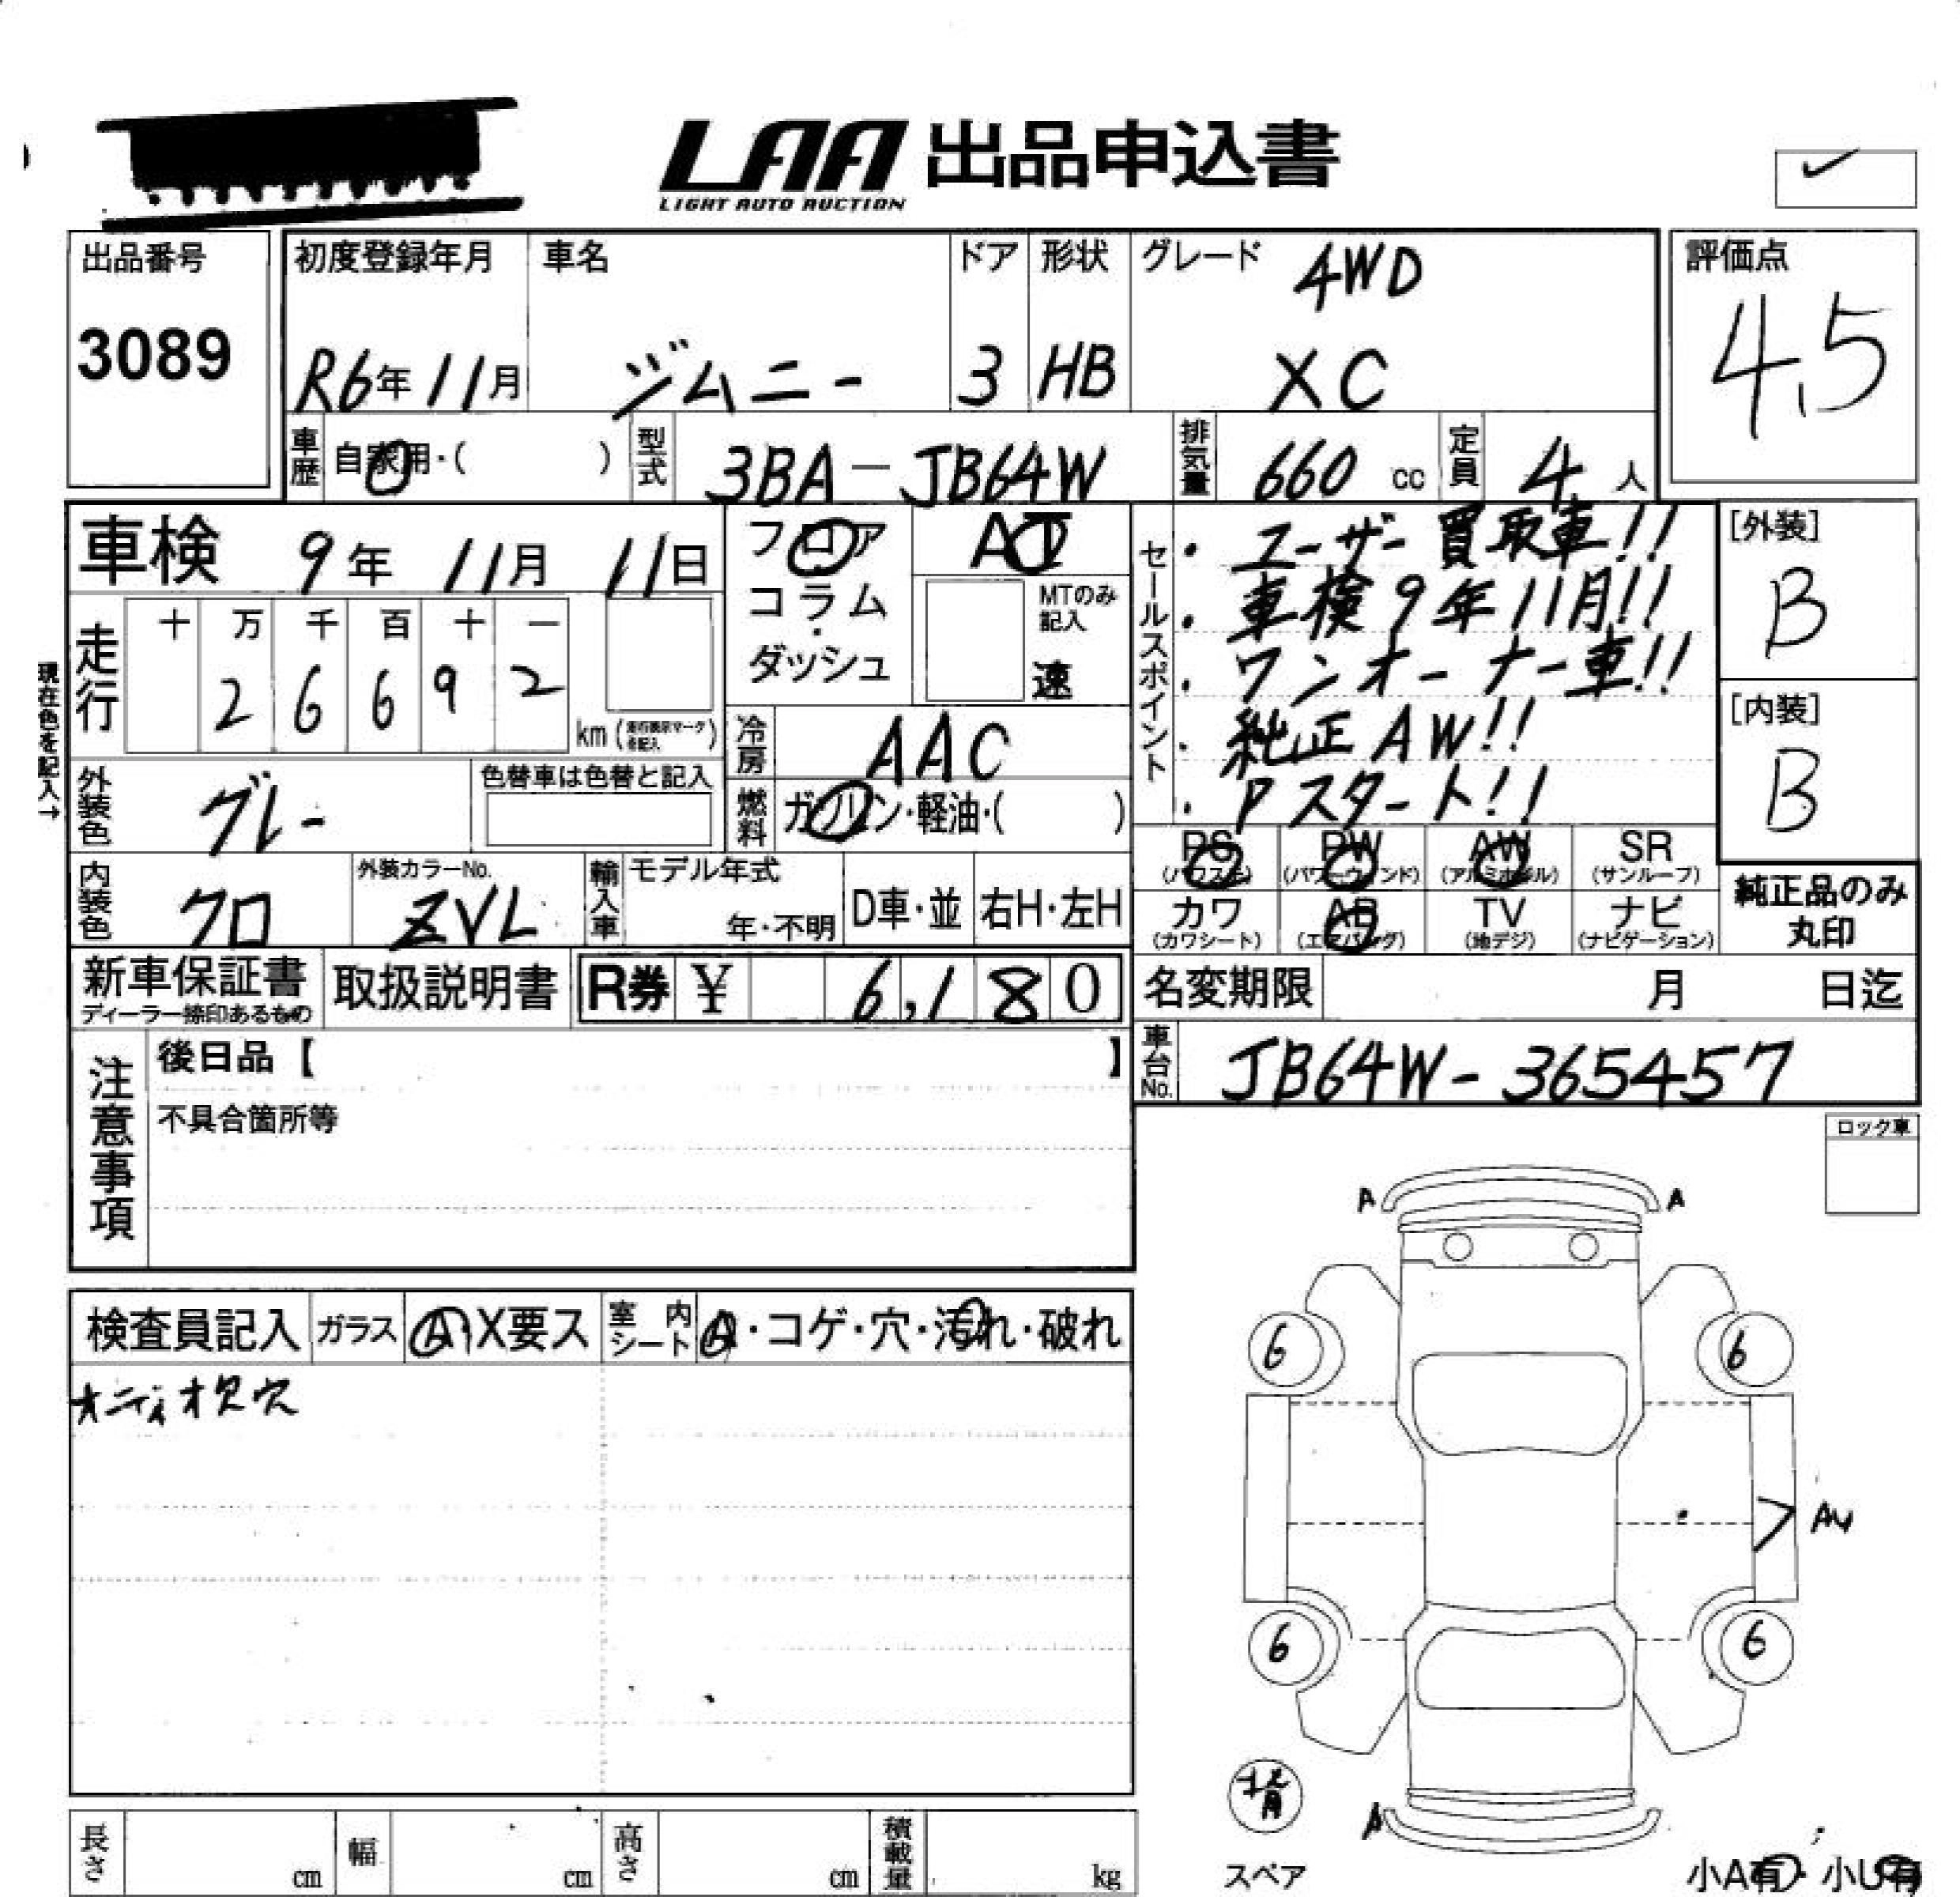 LAA 出品申込書
LIGHT AUTO AUCTION
出品番号
3089
初度登録年月
R6年11月
車名
ジムニー
ドア
3
形状
HB
グレード
4WD
XC
評価点
4.5
車歴
自家用・( )
型式
3BA-JB64W
排気量
660 cc
定員
4人
車検 9年 11月 11日
フロア
コラム
・
ダッシュ
AT
MTのみ
記入
速
セールスポイント
・ユーザー買取車!!
・車検9年11月!!
・ワンオーナー車!!
・純正AW!!
・Pスタート!!
[外装]
B
[内装]
B
現在色を記入→
走行
十 万 千 百 十 一
2 6 6 9 2
km
冷房
AAC
外装色
グレー
色替車は色替と記入
燃料
ガソリン・軽油・( )
PS
(パワステ)
PW
(パワーウィンド)
AW
(アルミホイル)
SR
(サンルーフ)
カワ
(カワシート)
AB
(エアバッグ)
TV
(地デジ)
ナビ
(ナビゲーション)
純正品のみ
丸印
内装色
クロ
外装カラーNo.
ZVL
輸入車
モデル年式
年・不明
D車・並
右H・左H
新車保証書
ディーラー捺印あるもの
取扱説明書
R券 ¥ 6,180
名変期限 月 日迄
注意事項
後日品【 】
不具合箇所等
車台No.
JB64W-365457
ロック車
検査員記入
ガラス
A・X要ス
室内シート
A・コゲ・穴・汚れ・破れ
オーディオ欠穴
A A
6 6
6 6
A
スペア
小A有・小U有
長さ cm
幅 cm
高さ cm
積載量 kg